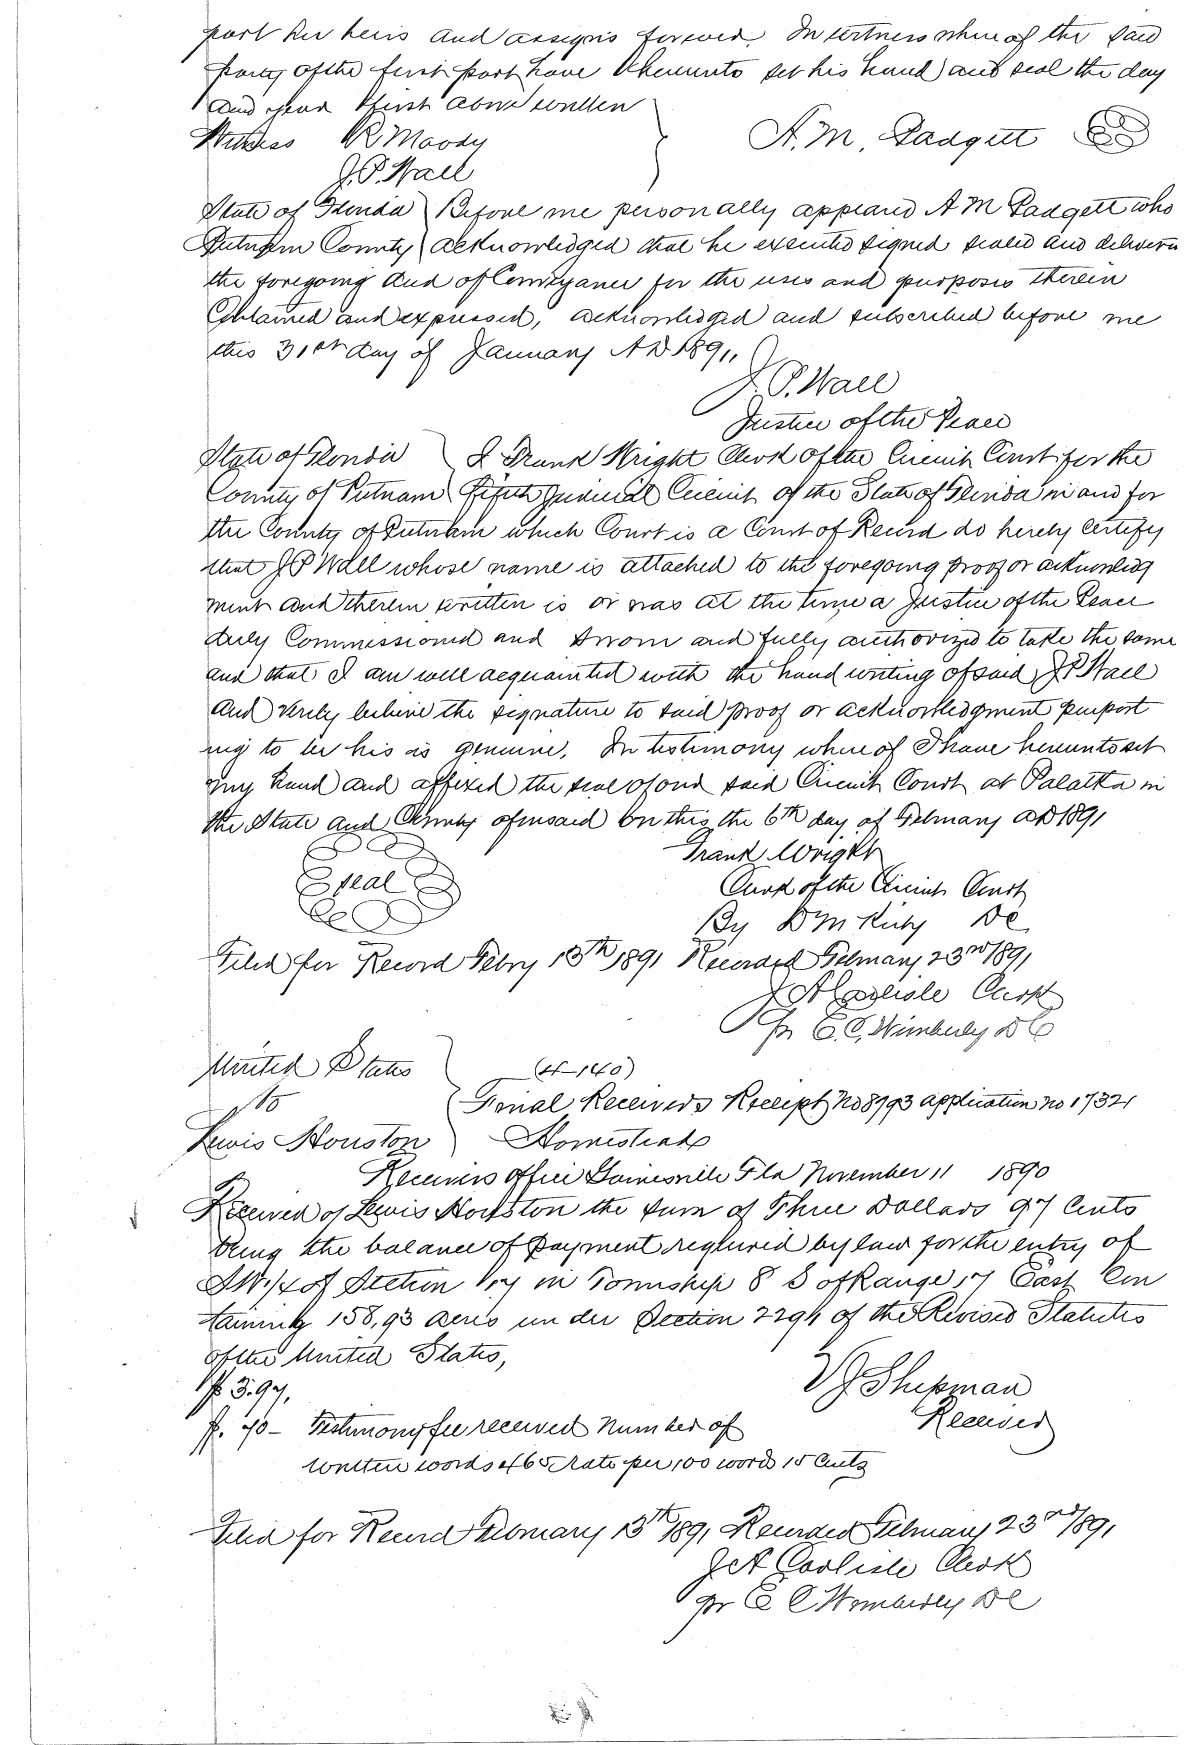 part her heirs and assigns forever. In witness whereof the said
party of the first part have hereunto set his hand and seal the day
and year first above written
Witness R Moody
A. M. Padgett
J. P. Wall
State of Florida Before me personally appeared A M Padgett who
Putnam County acknowledged that he executed signed sealed and delivered
the foregoing deed of Conveyance for the uses and purposes therein
Contained and expressed, acknowledged and subscribed before me
this 31st day of January A D 1891,
J. P. Wall
Justice of the Peace
State of Florida I Frank Wright Clerk of the Circuit Court for the
County of Putnam fifth Judicial Circuit of the State of Florida in and for
the County of Putnam which Court is a Court of Record do hereby certify
that J P Wall whose name is attached to the foregoing proof or acknowledg
ment and therein written is or was at the time a Justice of the Peace
duly Commissioned and sworn and fully authorized to take the same
and that I am well acquainted with the hand writing of said J P Wall
and verily believe the signature to said proof or acknowledgment purport
ing to be his is genuine. In testimony where of I have hereunto set
my hand and affixed the seal of said Circuit Court at Palatka in
the State and County on this the 6th day of February AD 1891
Frank Wright
Seal
Clerk of the Circuit Court
By D M Kirby DC
Filed for Record Febry 13th 1891 Recorded February 23rd 1891
J A Carlisle Clerk
pr E. C. Wimberly D C
United States (4-140)
to Final Receivers Receipt No 8993 application no 17321
Lewis Houston Homestead
Receivers office Gainesville Fla November 11 1890
Received of Lewis Houston the sum of Three Dollars 97 Cents
being the balance of payment required by law for the entry of
SW 1/4 of Section in Township 8 S of Range 17 East Con
taining 158.93 acres under Section 2291 of the Revised Statutes
of the United States,
$3.97.
V J Shipman
Receiver
Testimony fee received Number of
written words 465 Rate per 100 words 15 Cents
Filed for Record February 13th 1891 Recorded February 23rd 1891
J A Carlisle Clerk
pr E C Wimberly DC